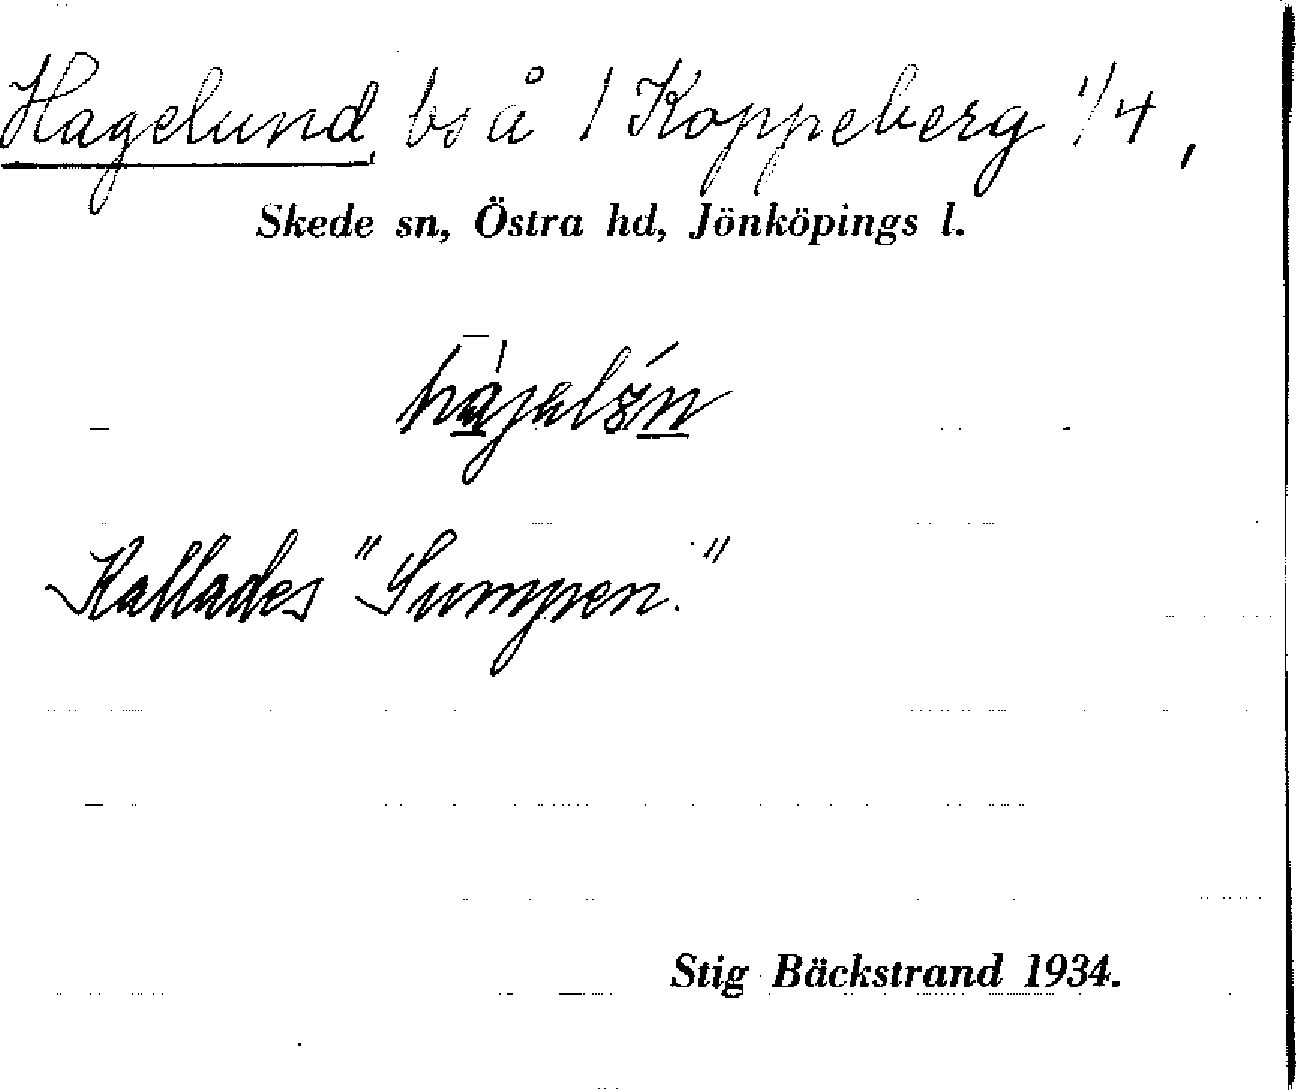 Hagelund, bs å 1 Koppeberg 1/4,
Skede sn, Östra hd, Jönköpings l.
Kallades "Sumpen."
Stig Bäckstrand 1934.